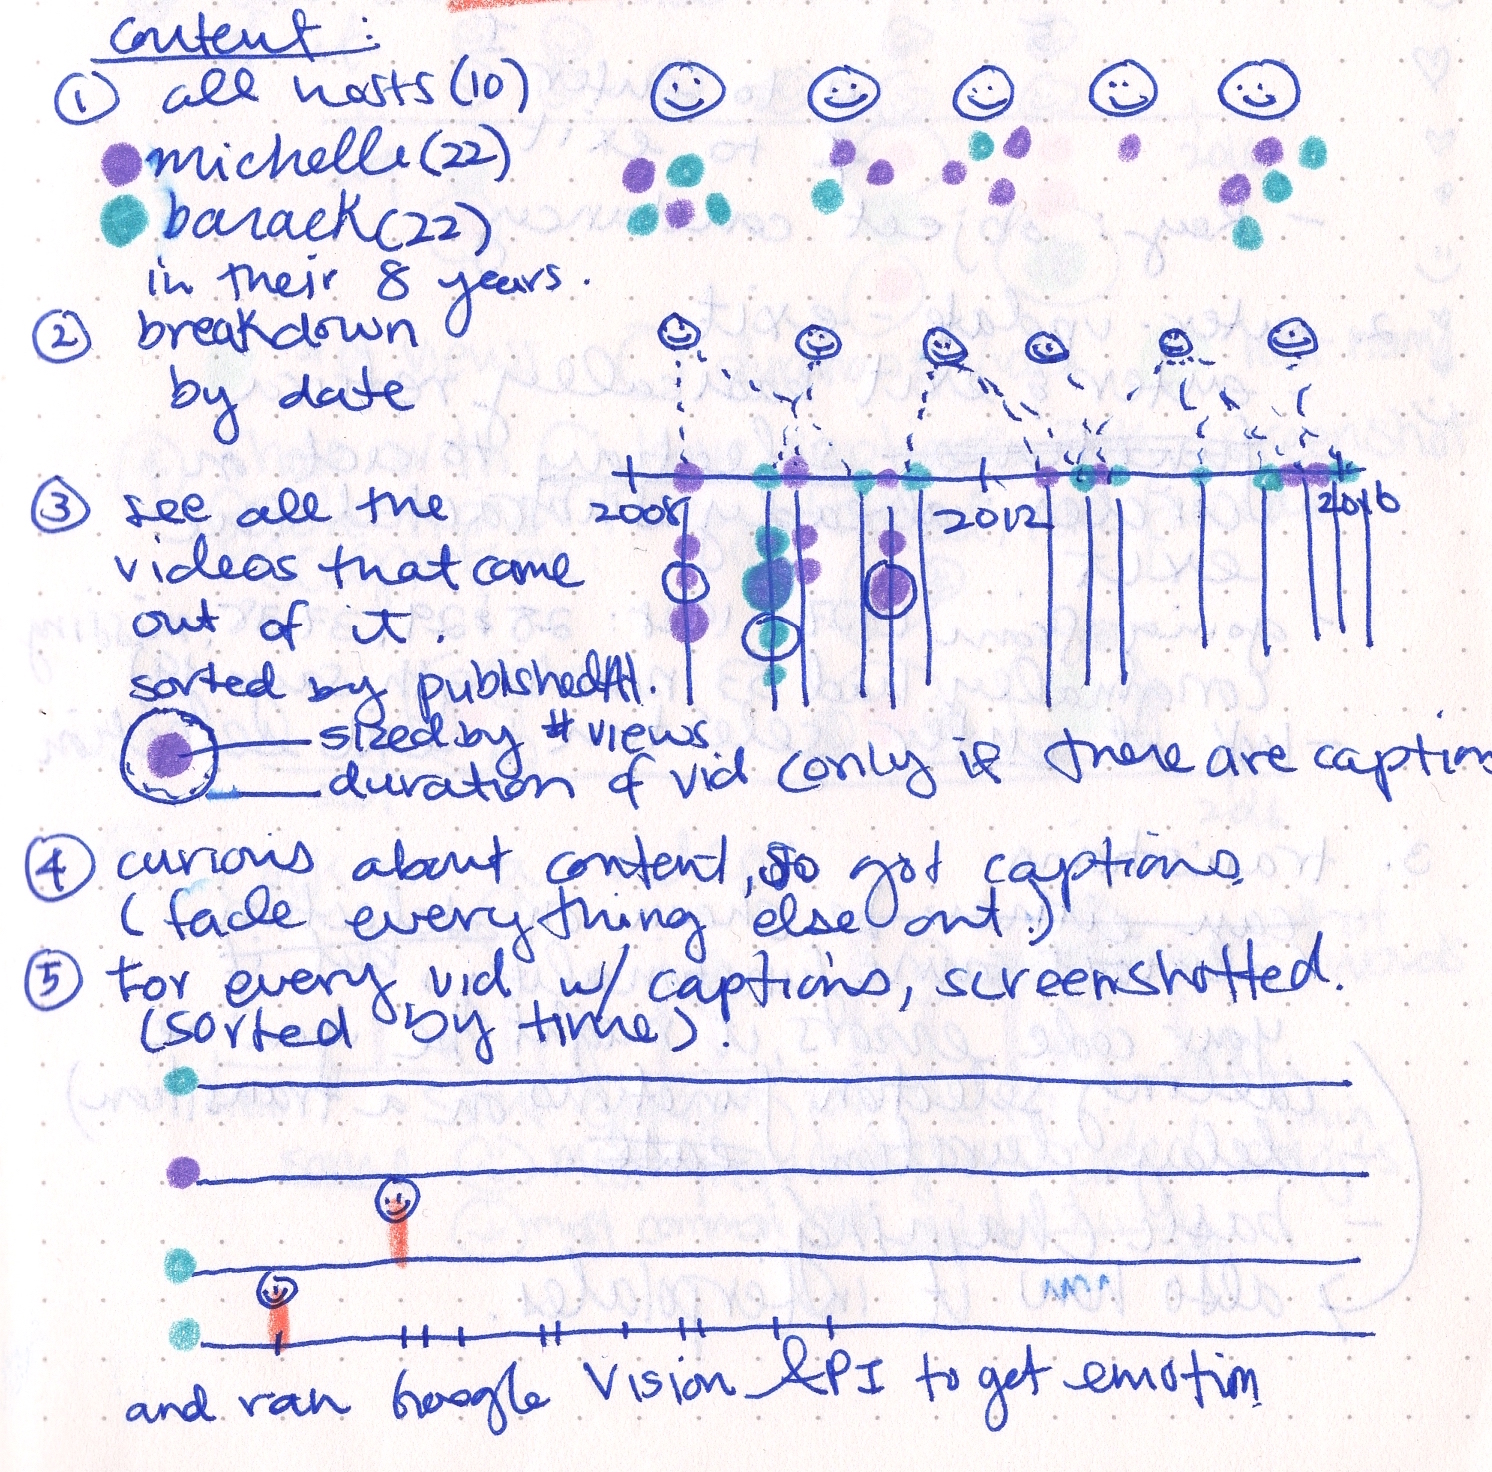 content:
① all hosts (10)
michelle (22)
barack (22)
in their 8 years.
② breakdown
by date
③ see all the
videos that came
out of it.
sorted by publishedAt.
2008 2012 2016
sized by # views
duration of vid (only if there are caption
④ curious about content, so got captions.
(fade everything else out.)
⑤ for every vid w/ captions, screenshotted.
(sorted by time).
and ran Google Vision API to get emotion